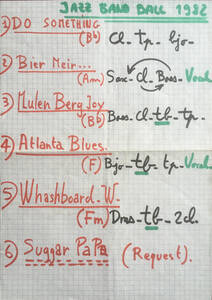 JAZZ BAND BALL 1982
1) DO SOMETHING
(Bb) Cl_ tp_ bjo_
2) Bier Meir...
(Am) Sax_ cl_ Bras_ Vocal
3) Mulen Berg Joy
(Bb) Bras_ cl_ tb_ tp_
4) Atlanta Blues.
(F) Bjo_ tb_ tp_ Vocal.
5) Whashboard_W_
(Fm) Dms_ tb_ 2cl.
6) Suggar PaPa (Request).